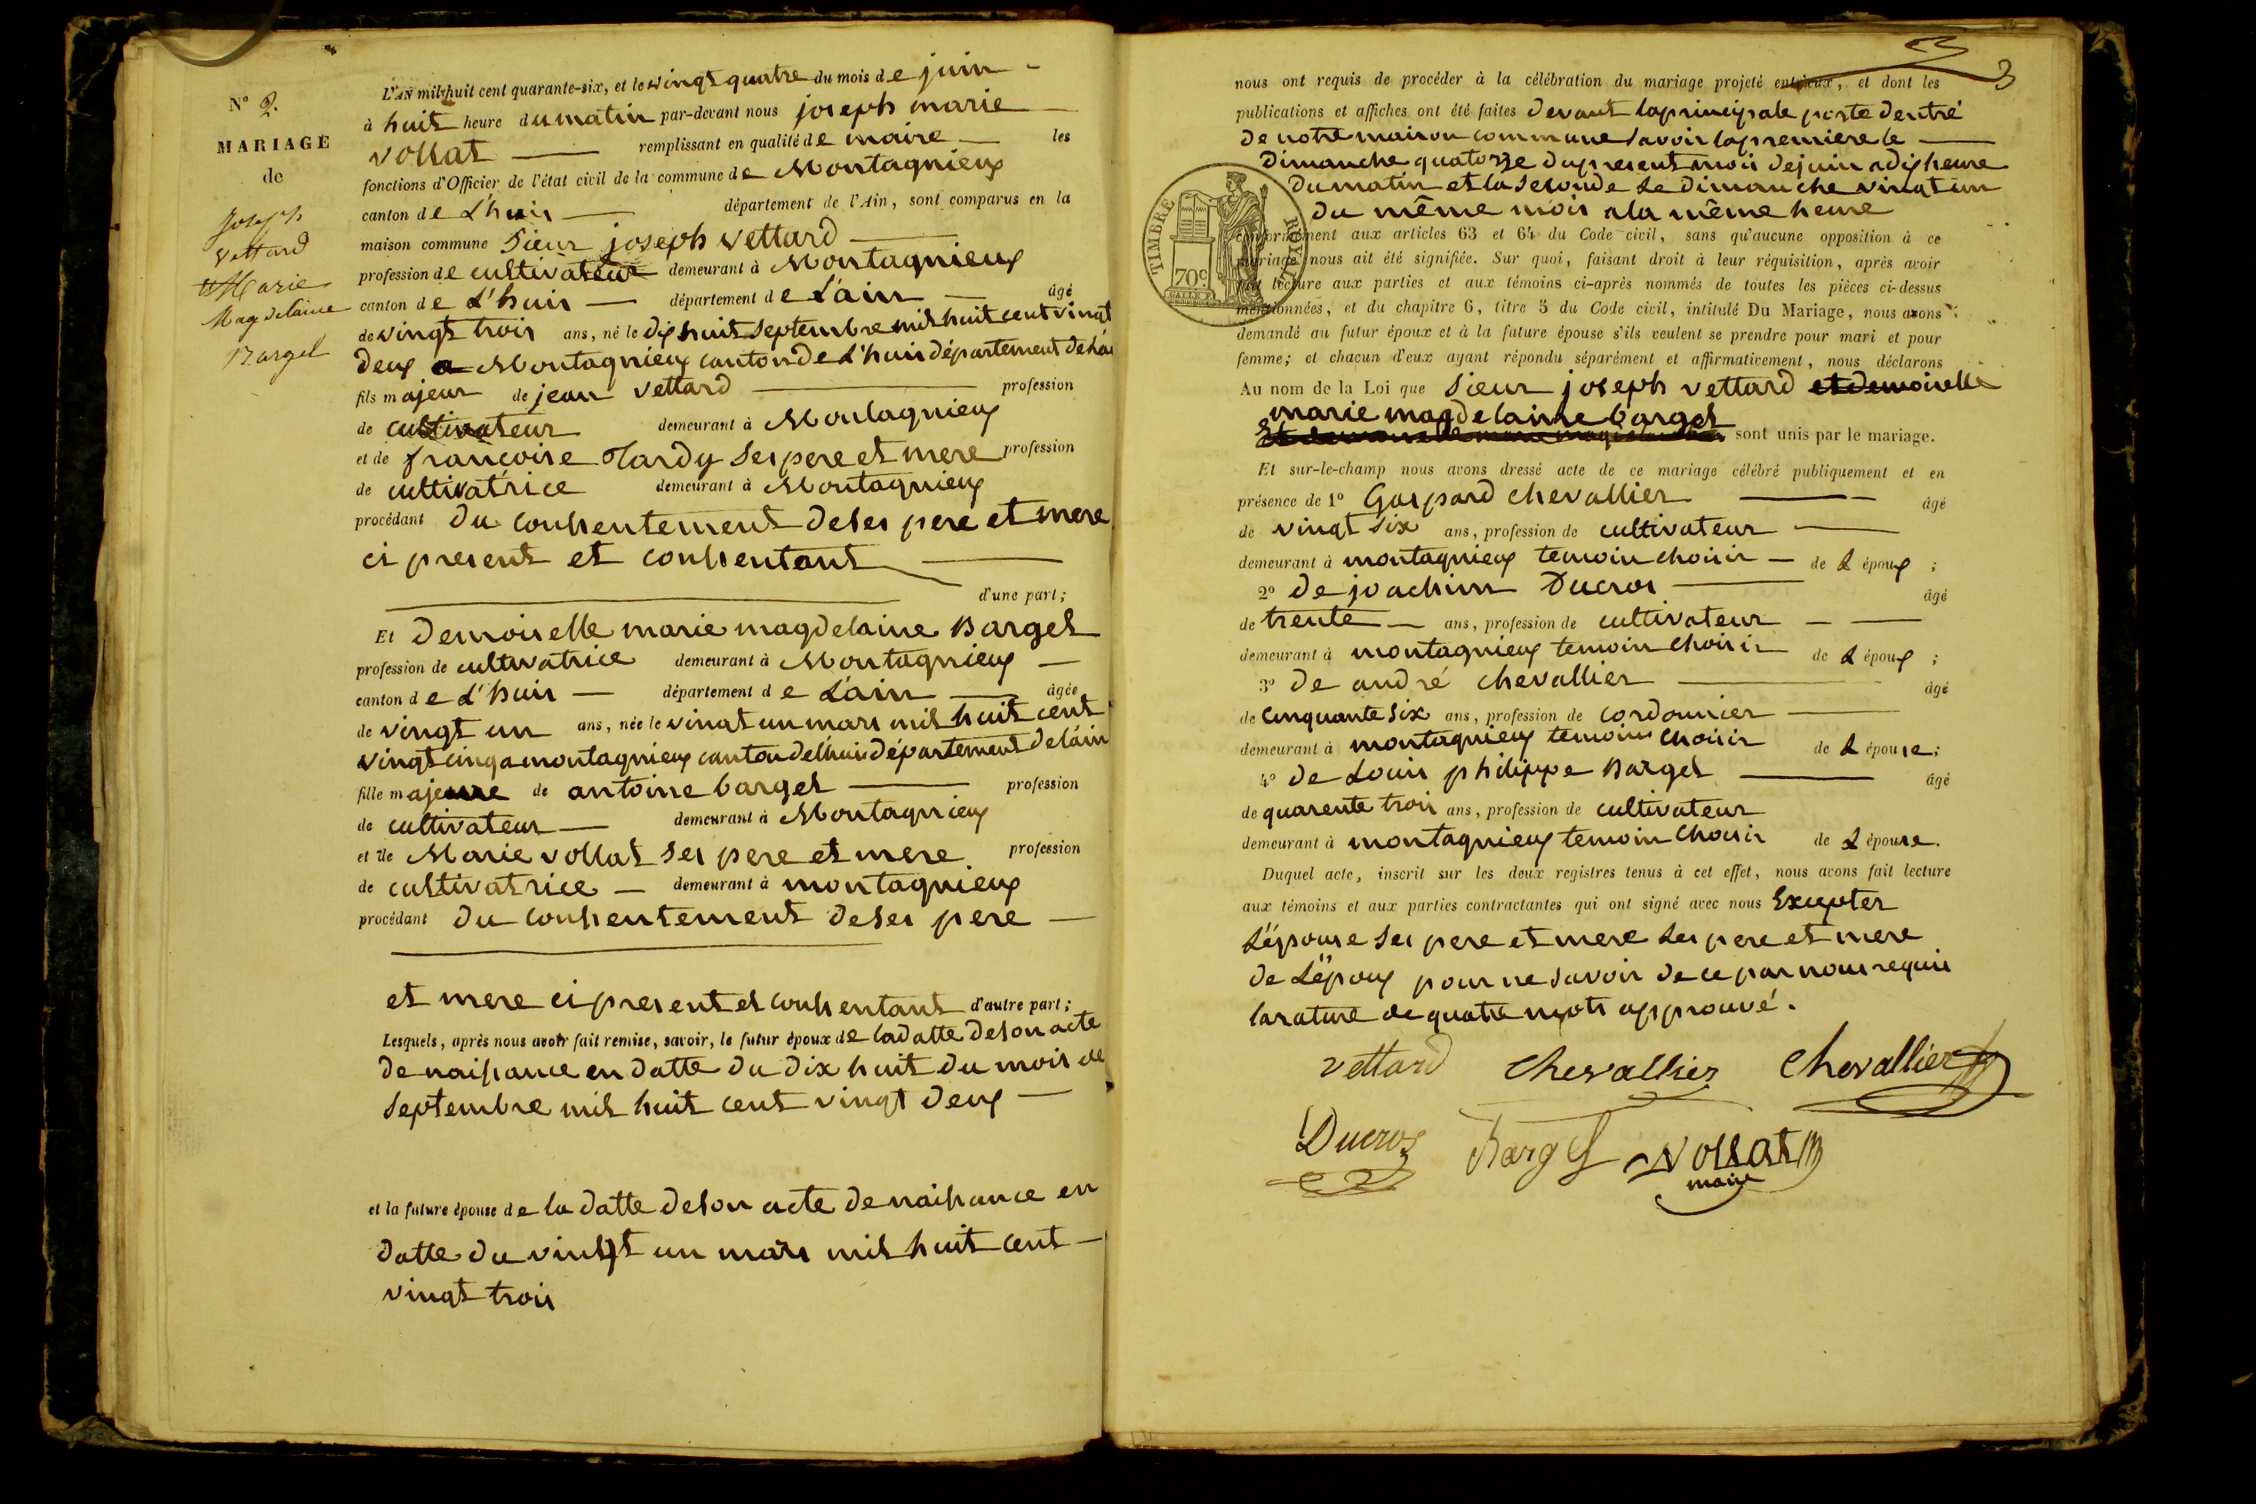 N° 2.
MARIAGE
de
Joseph
Vettard
et Marie
Magdelaine
Bargel
L'AN mil huit cent quarante-six, et le vingt quatre du mois de juin
à huit heure du matin par-devant nous joseph marie
vollat remplissant en qualité de maire les
fonctions d'Officier de l'état civil de la commune de Montagnieux
canton de L'huis département de l'Ain, sont comparus en la
maison commune Sieur joseph vettard
profession de cultivateur demeurant à Montagnieux
canton de L'huis département de L'ain âgé
de vingt trois ans, né le dix huit Septembre mil huit cent vingt
deux a Montagnieux canton de L'huis département de
fils majeur de jean vettard profession
de cultivateur demeurant à Montagnieux
et de françoise Tardy ses pere et mere profession
de cultivatrice demeurant à Montagnieux
procédant du conhentement de ses pere et mere
ci present et conhentant
d'une part;
Et Demoiselle marie magdelaine Bargel
profession de cultivatrice demeurant à Montagnieux
canton de L'huis département de L'ain âgée
de vingt un ans, née le vingt un mars mil huit cent
vingt cinq a montagnieux canton de lhuis département de lain
fille majeure de antoine bargel profession
de cultivateur demeurant à Montagnieux
et de Marie vollat ses pere et mere profession
de cultivatrice demeurant à montagnieux
procédant du conhentement de ses pere
et mere ci present et conhentant d'autre part;
Lesquels, après nous avoir fait remise, savoir, le futur époux de la datte de son acte
de naihance en datte du dix huit du mois de
Septembre mil huit cent vingt deux
et la future épouse de la datte de son acte de naihance en
datte du vingt un mars mil huit cent
vingt trois
3
nous ont requis de procéder à la célébration du mariage projeté entr'eux, et dont les
publications et affiches ont été faites devant la principale porte dentré
de notre maison commune savoir la premiere le
Dimanche quatorze du present mois de juin a dix heure
du matin et la seconde le Dimanche vingt un
du même mois a la même heure
TIMBRE ROYAL
70c
conformément aux articles 63 et 64 du Code civil, sans qu'aucune opposition à ce
mariage nous ait été signifiée. Sur quoi, faisant droit à leur réquisition, après avoir
fait lecture aux parties et aux témoins ci-après nommés de toutes les pièces ci-dessus
mentionnées, et du chapitre 6, titre 5 du Code civil, intitulé Du Mariage, nous avons
demandé au futur époux et à la future épouse s'ils veulent se prendre pour mari et pour
femme; et chacun d'eux ayant répondu séparément et affirmativement, nous déclarons
Au nom de la Loi que Sieur joseph vettard et demoiselle
marie magdelaine bargel
sont unis par le mariage.
Et sur-le-champ nous avons dressé acte de ce mariage célébré publiquement et en
présence de 1° Gaspard chevallier âgé
de vingt six ans, profession de cultivateur
demeurant à montagnieux temoin choisir de L époux ;
2° de joachim Ducros âgé
de trente ans, profession de cultivateur
demeurant à montagnieux temoin choisir de L époux ;
3° de andré chevallier âgé
de Cinquante Six ans, profession de cordonnier
demeurant à montagnieux temoin choisir de L épouse;
4° de Louis philippe Bargel âgé
de quarente trois ans, profession de cultivateur
demeurant à montagnieux temoin choisir de L épouse.
Duquel acte, inscrit sur les deux registres tenus à cet effet, nous avons fait lecture
aux témoins et aux parties contractantes qui ont signé avec nous Excepter
L'épouse ses pere et mere les pere et mere
de L'époux pour ne savoir de ce par nous requis
la rature de quatre mots approuvé.
vettard Chevallier Chevallier
Ducros Bargel Vollat
maire